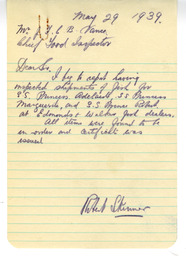 May 29 1939.
Mr. B Vance
Chief Food Inspector
Dear Sir,
I beg to report having
inspected shipments of Pork for
S.S. Princess Adelaide, SS Princess
Marguerite and S.S. Robert
at Edmonds & Walker food dealers.
All items were found to be
in order and certificate was
issued
Robert Skinner